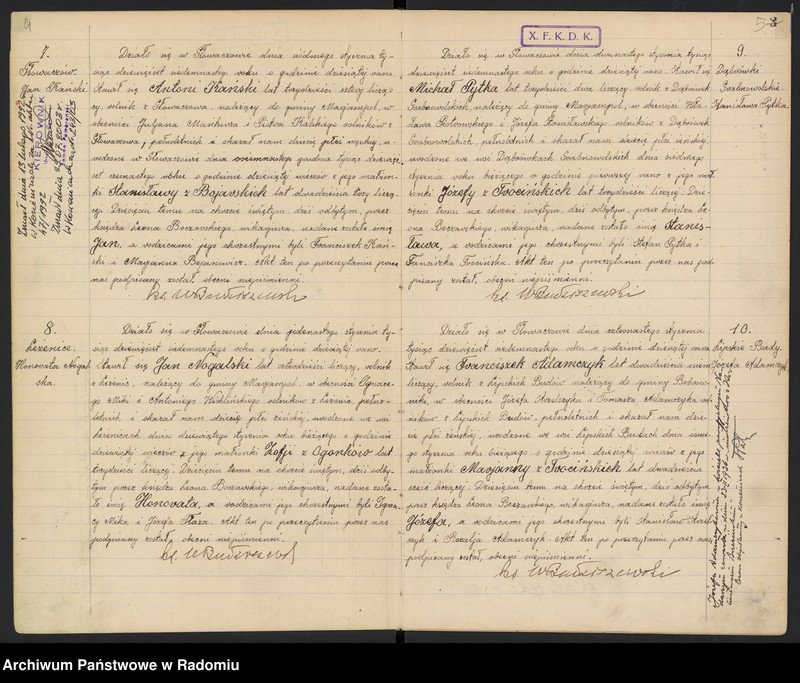 4
7.
Głowaczów.
Jan Kański.
KIEROWNIK
Działo się w Głowaczowie dnia siódmego stycznia ty-
siąc dziewięćset siedemnastego roku o godzinie dziesiątej rano.
Stawił się Antoni Kański lat trzydzieści cztery liczą-
cy, rolnik z Głowaczowa należący do gminy Maryampol, w
obecności Juljana i Piotra rolników z
Głowaczowa, pełnoletnich i okazał nam dziecię płci męzkiej, u-
rodzone w Głowaczowie dnia osiemnastego grudnia tysiąc dziewięć-
set szesnastego roku o godzinie dziewiątej wieczór z jego małżon-
ki Stanisławy z Bojarskich lat dwadzieścia trzy liczą-
cej. Dziecięciu temu na chrzcie świętym, dziś odbytym, przez
księdza Leona Bozowskiego, wikaryusza, nadane zostało imię
Jan, a rodzicami jego chrzestnymi byli Franciszek Kań-
ski i Maryanna Bojanowicz. Akt ten po przeczytaniu przez
nas podpisany został, obecni niepiśmienni.
ks. W Budziszewski
8.
Leżenice.
Honorata Nogal-
ska.
Działo się w Głowaczowie dnia jedenastego stycznia ty-
siąc dziewięćset siedemnastego roku o godzinie dziesiątej rano.
Stawił się Jan Nogalski lat czterdzieści liczący, rolnik
z Leżenic, należący do gminy Maryampol, w obecności Ignace-
go Meki i Antoniego rolników z Leżenic, pełno-
letnich i okazał nam dziecię płci żeńskiej, urodzone we wsi
Leżenicach dnia dziewiątego stycznia roku bieżącego o godzinie
dziewiątej wieczór z jego małżonki Zofji z Ogonków lat
trzydzieści liczącej. Dziecięciu temu na chrzcie świętym, dziś odby-
tym przez księdza Leona Bozowskiego, wikaryusza, nadane zosta-
ło imię Honorata, a rodzicami jego chrzestnymi byli Igna-
cy Meka i Józefa Płaza. Akt ten po przeczytaniu przez nas
podpisany został, obecni niepiśmienni.
ks. W Budziszewski
X. F. K. D. K.
5
9.
Dąbrówki
Grabnowolskie.
Stanisława Pytka.
Działo się w Głowaczowie dnia dwunastego stycznia tysiąc
dziewięćset siedemnastego roku o godzinie dziesiątej rano. Stawił się
Michał Pytka lat trzydzieści dwa liczący, rolnik z Dąbrówek
Grabnowolskich, należący do gminy Maryampol, w obecności
Piotrowskiego i Józefa rolników z Dąbrówek
Grabnowolskich, pełnoletnich i okazał nam dziecię płci żeńskiej,
urodzone we wsi Dąbrówkach Grabnowolskich dnia siódmego
stycznia roku bieżącego o godzinie pierwszej rano z jego mał-
żonki Józefy z Trocińskich lat trzydzieści liczącej. Dzie-
cięciu temu na chrzcie świętym, dziś odbytym, przez księdza Le-
ona Bozowskiego, wikaryusza, nadane zostało imię Stanis-
ława, a rodzicami jego chrzestnymi byli Stefan Pytka i
Franciszka Trocińska. Akt ten po przeczytaniu przez nas pod-
pisany został, obecni niepiśmienni.
ks. W Budziszewski
10.
Lipskie Budy.
Józefa Adamczyk.
Działo się w Głowaczowie dnia czternastego stycznia
tysiąc dziewięćset siedemnastego roku o godzinie dziesiątej rano.
Stawił się Franciszek Adamczyk lat dwadzieścia osiem
liczący, rolnik z Lipskich Budów należący do gminy Bobrow-
niki, w obecności Józefa i Tomasza Adamczyka rol-
ników z Lipskich Budów, pełnoletnich i okazał nam dzie-
cię płci żeńskiej, urodzone we wsi Lipskich Budach dnia ósme-
go stycznia roku bieżącego o godzinie dziesiątej wieczór z jego
małżonki Maryanny z Trocińskich lat dwadzieścia
sześć liczącej. Dziecięciu temu na chrzcie świętym, dziś odbytym
przez księdza Leona Bozowskiego, wikaryusza, nadane zostało imię
Józefa, a rodzicami jego chrzestnymi byli Stanisław
i Rozalja Adamczyk. Akt ten po przeczytaniu przez nas
podpisany został, obecni niepiśmienni.
ks. W Budziszewski
Archiwum Państwowe w Radomiu